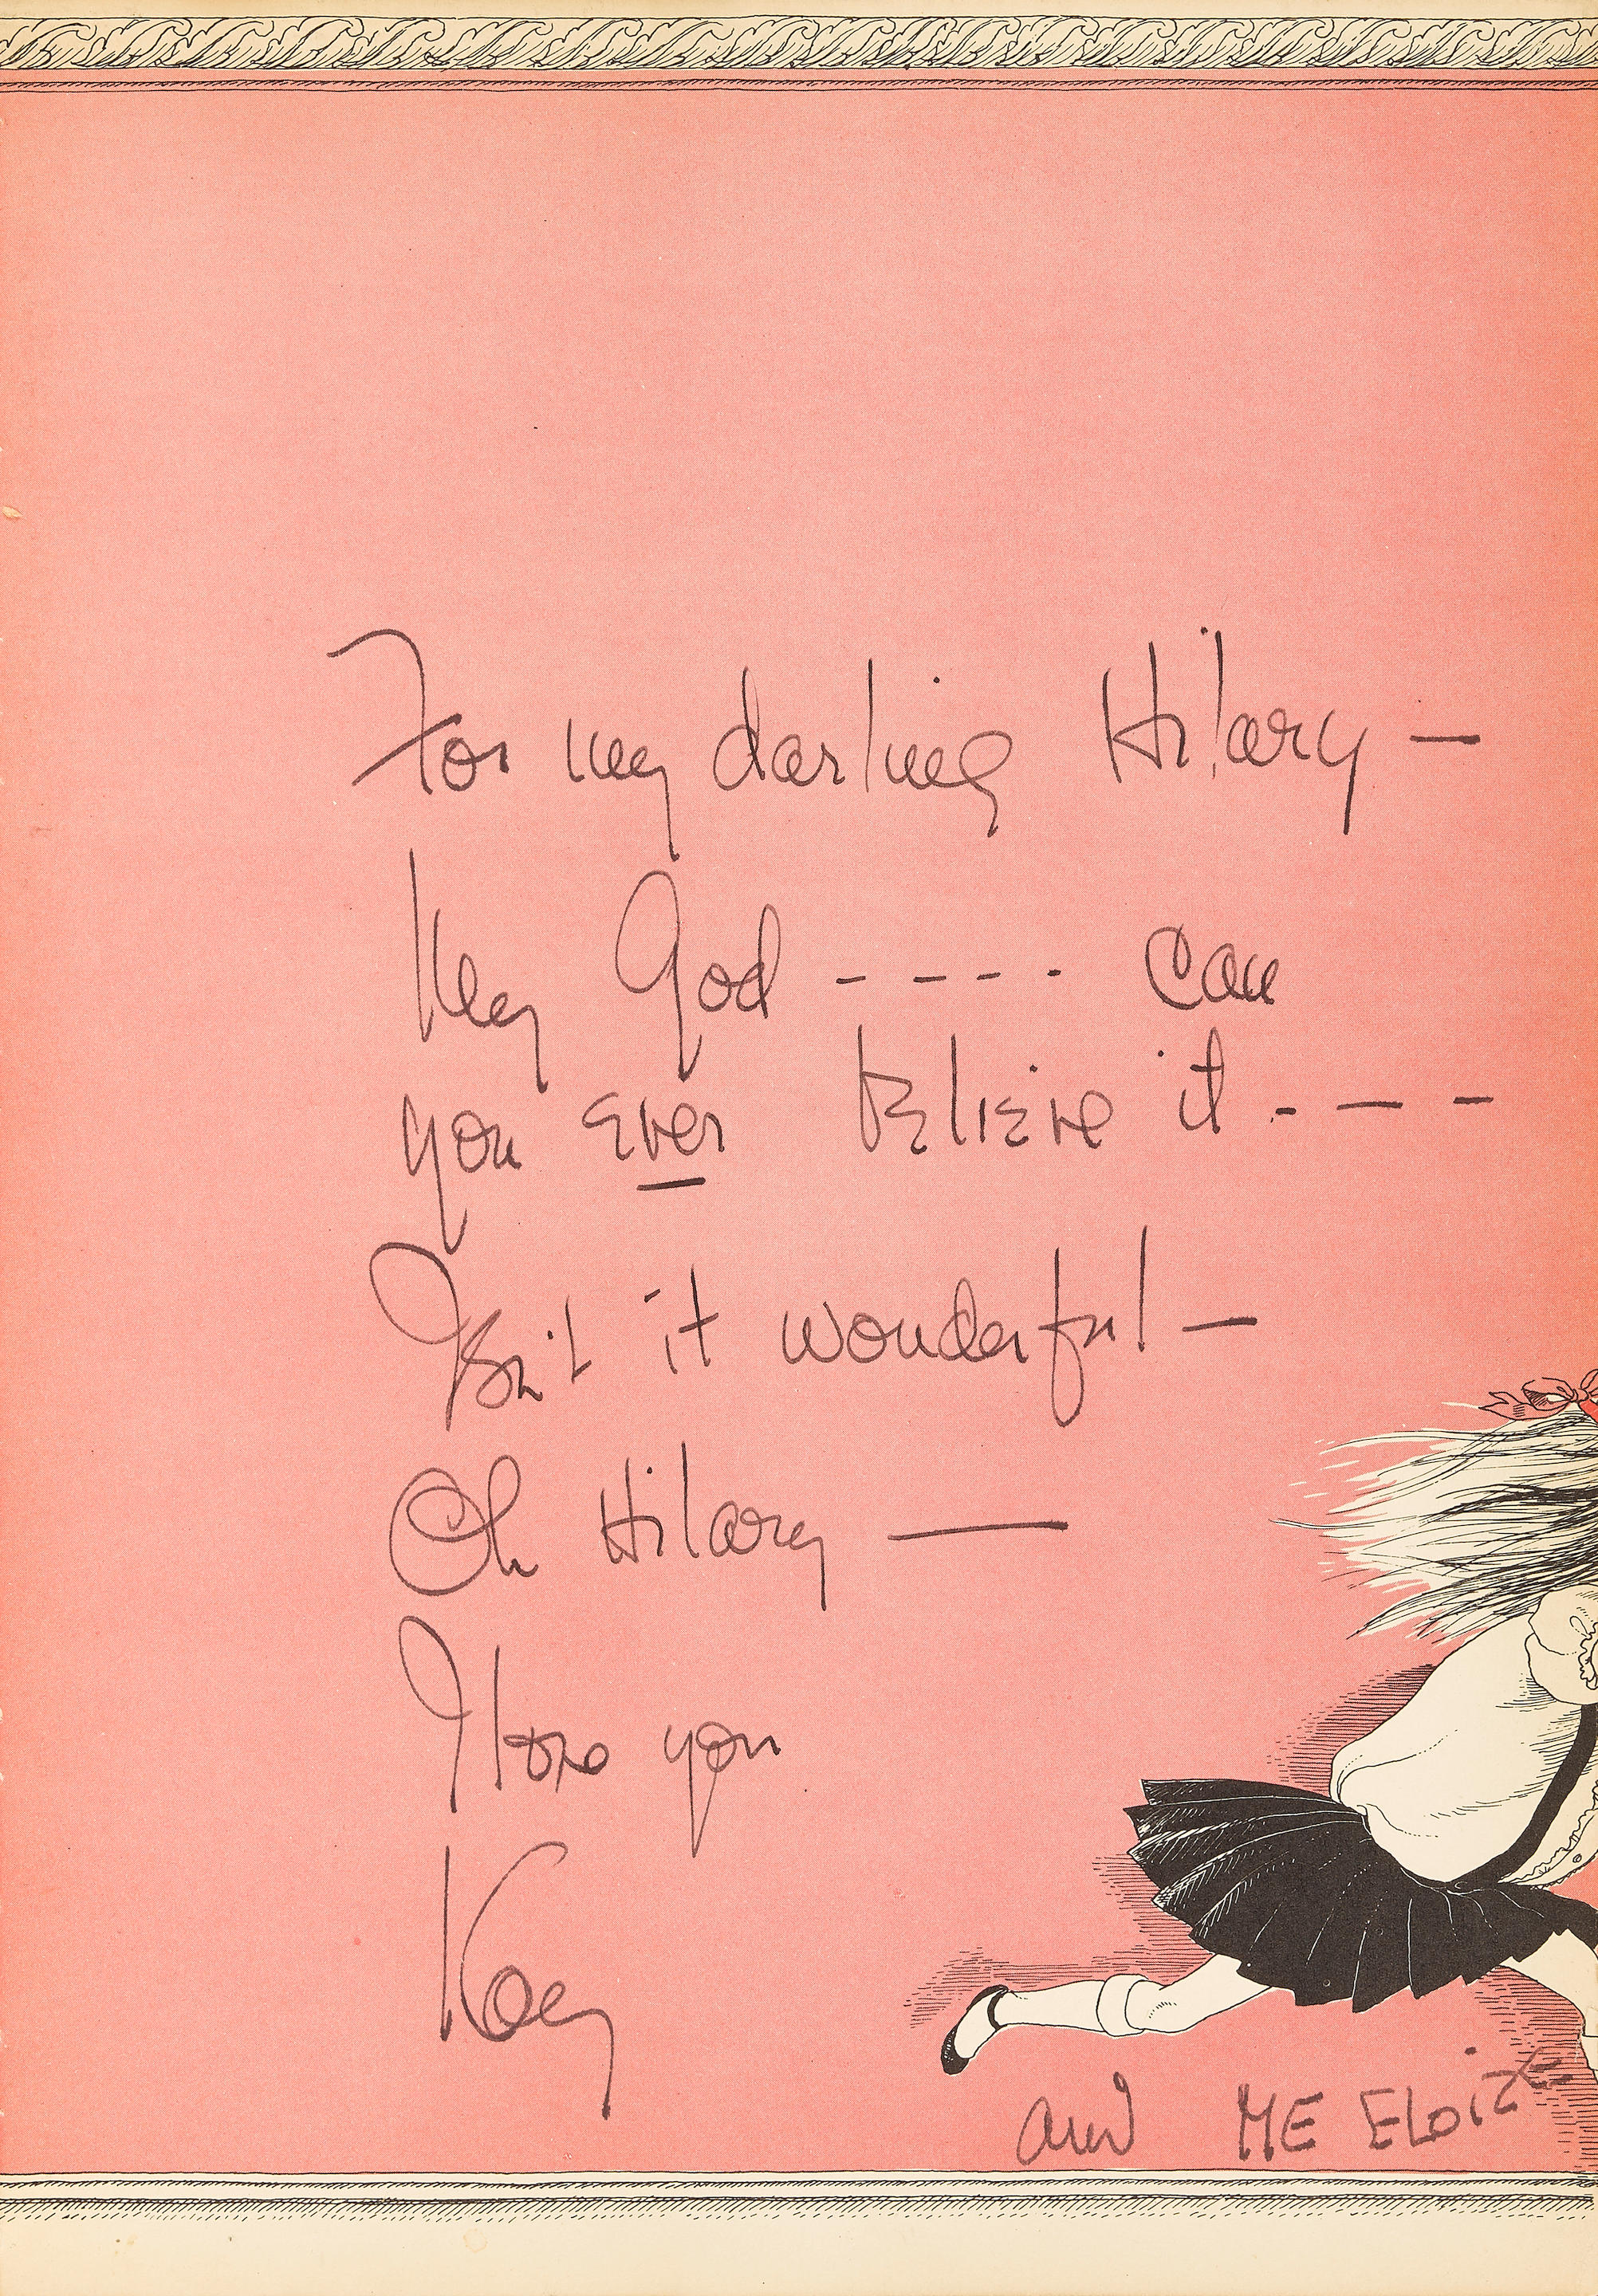 For my darling Hilary —
My God - - - - can
you ever believe it - - -
Isn't it wonderful —
Oh Hilary —
I love you
Kay
and ME ELOiZE